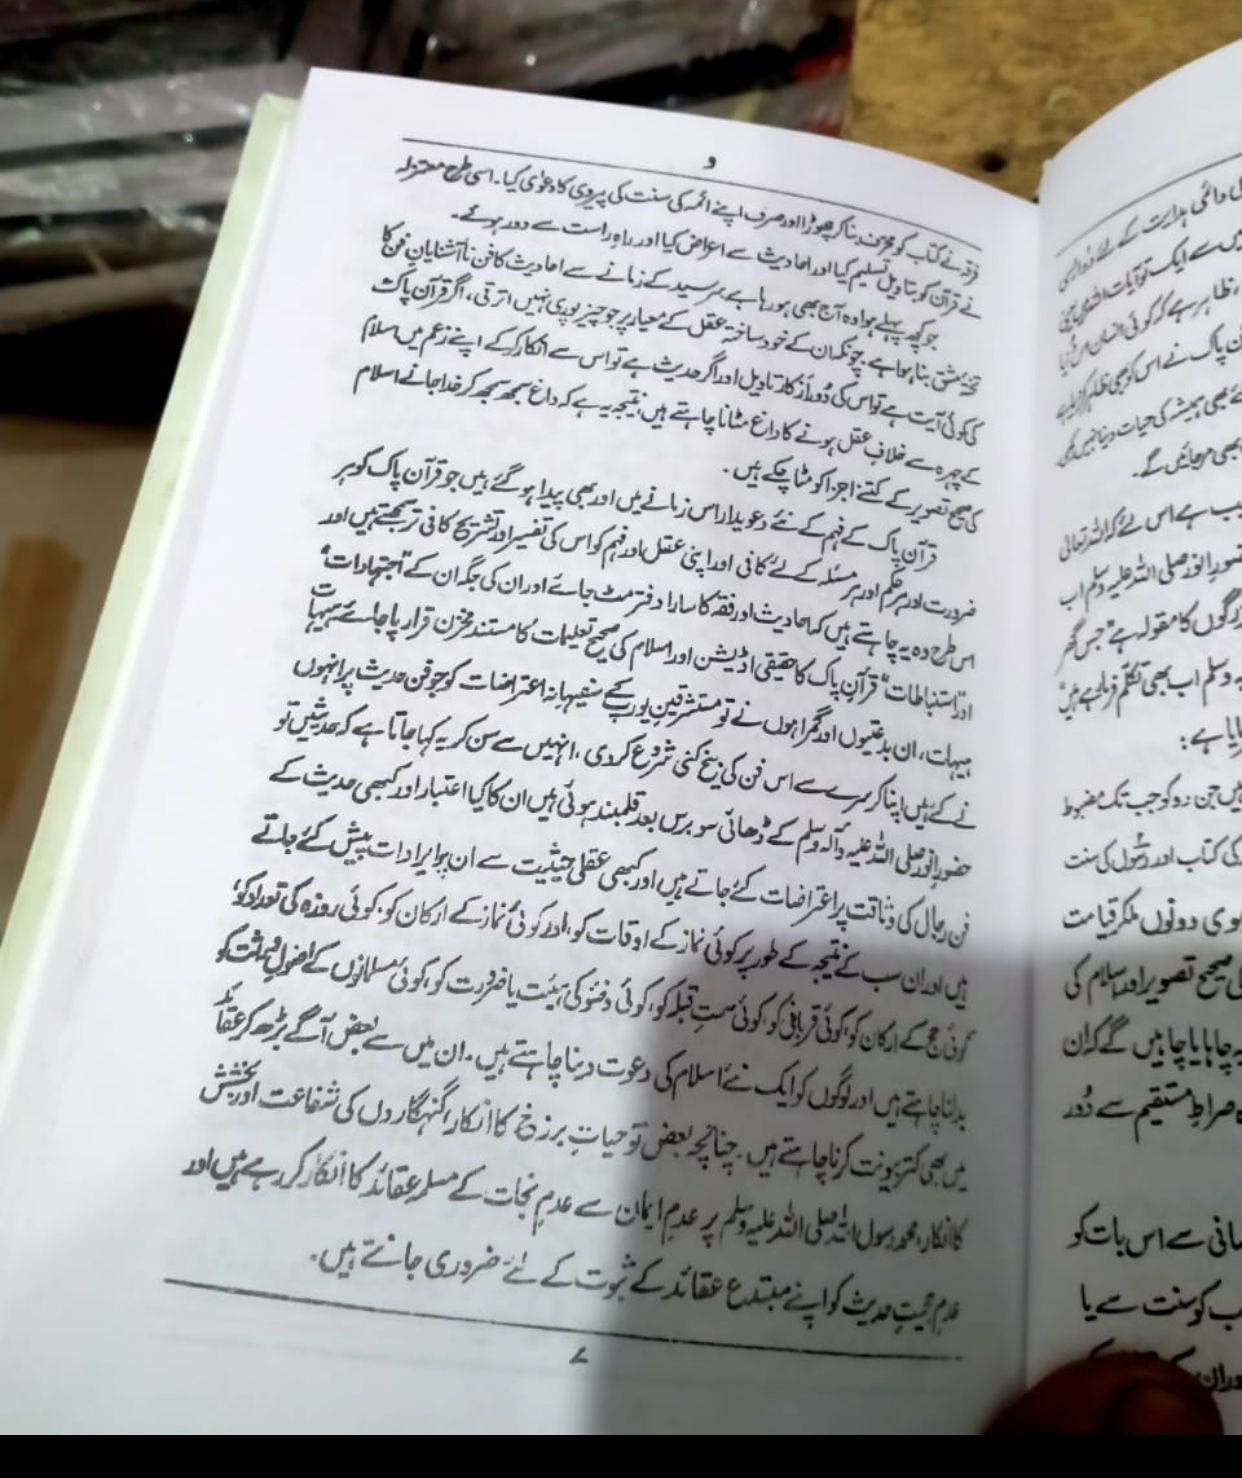 و
فرقہ نے کتاب کو محرف بنا کر چھوڑا اور صرف اپنے ائمہ کی سنت کی پیروی کا دعوٰی کیا۔ اسی طرح معتزلہ
نے قرآن کو بتاویل تسلیم کیا اور احادیث سے اعراض کیا اور راہِ راست سے دور ہوئے۔
جو کچھ پہلے ہوا وہ آج بھی ہو رہا ہے سرسید کے زمانے سے احادیث کا فن ناآشنایانِ فن کا
تختۂ مشق بنا ہوا ہے۔ چونکہ ان کے خود ساختہ عقل کے معیار پر جو چیز پوری نہیں اترتی، اگر قرآن پاک
کی کوئی آیت ہے تو اس کی دُور از کار تاویل اور اگر حدیث ہے تو اس سے انکار کر کے اپنے زعم میں اسلام
کے چہرہ سے خلافِ عقل ہونے کا داغ مٹانا چاہتے ہیں، نتیجہ یہ ہے کہ داغ سمجھ سمجھ کر خدا جانے اسلام
کی صحیح تصویر کے کتنے اجزا کو مٹا چکے ہیں۔
قرآن پاک کے فہم کے نئے دعویدار اس زمانے میں اور بھی پیدا ہو گئے ہیں جو قرآن پاک کو ہر
ضرورت اور ہر حکم اور ہر مسئلہ کے لئے کافی اور اپنی عقل اور فہم کو اس کی تفسیر اور تشریح کافی تر سمجھتے ہیں اور
اس طرح وہ یہ چاہتے ہیں کہ احادیث اور فقہ کا سارا دفتر مٹ جائے اور ان کی جگہ ان کے "اجتہادات"
اور "استنباطات" قرآنِ پاک کا حقیقی اڈیشن اور اسلام کی صحیح تعلیمات کا مستند مخزن قرار پا جائے ہیہات
ہیہات، ان بدعتیوں اور گمراہوں نے تو مستشرقینِ یورپ کے سفیہانہ اعتراضات کو جو فن حدیث پر انہوں
نے کئے ہیں اپنا کر سرے سے اس فن کی بیخ کنی شروع کر دی، انہیں سے سن کر یہ کہا جاتا ہے کہ حدیثیں تو
حضورِ انور صلی اللہ علیہ وآلہ وسلم کے ڈھائی سو برس بعد قلمبند ہوئی ہیں ان کا کیا اعتبار اور کبھی حدیث کے
فن رجال کی وثاقت پر اعتراضات کئے جاتے ہیں اور کبھی عقلی حیثیت سے ان پر ایرادات پیش کئے جاتے
ہیں اور ان سب کے نتیجہ کے طور پر کوئی نماز کے اوقات کو، اور کوئی نماز کے ارکان کو، کوئی روزہ کی تعداد کو،
کوئی حج کے ارکان کو، کوئی قربانی کو، کوئی سمتِ قبلہ کو، کوئی وضو کی ہیئت یا ضرورت کو، کوئی مسلمانوں کے اصولِ وراثت کو
بدلنا چاہتے ہیں اور لوگوں کو ایک نئے اسلام کی دعوت دینا چاہتے ہیں۔ ان میں سے بعض آگے بڑھ کر عقائد
میں بھی کتربیونت کرنا چاہتے ہیں۔ چنانچہ بعض تو حیاتِ برزخ کا انکار، گنہگاروں کی شفاعت اور بخشش
کا انکار، محمد رسول اللہ صلی اللہ علیہ وسلم پر عدم ایمان سے عدمِ نجات کے مسلمہ عقائد کا انکار کر رہے ہیں اور
عدمِ حجیتِ حدیث کو اپنے مبتدع عقائد کے ثبوت کے لئے ضروری جانتے ہیں۔
دائمی ہدایت کے لئے
میں سے ایک تو آیات
ظاہر ہے کہ کوئی انسان
پاک نے اس کو بھی ظاہر
بھی ہمیشہ کی حیات دینا نہیں
بھی مر جائیں گے۔
ہے اس لئے کہ اللہ تعالٰی
حضورِ انور صلی اللہ علیہ وسلم اب
بزرگوں کا مقولہ ہے "جس گھر
وسلم اب بھی تکلم فرما رہے ہیں"
ہے:
ہیں جن دو کو جب تک مضبوط
کی کتاب اور رسُول کی سنت
دونوں مل کر قیامت
صحیح تصویر اور اسلام کی
چاہا یا چاہیں گے کہ ان
صراطِ مستقیم سے دُور
سے اس بات کو
کو سنت سے یا